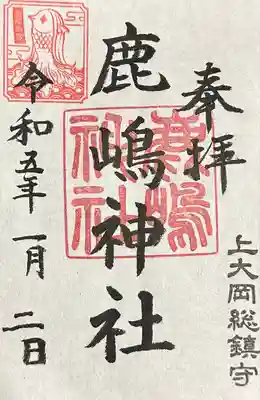 奉拝
上大岡総鎮守
鹿嶋神社
鹿嶋神社
令和五年一月二日